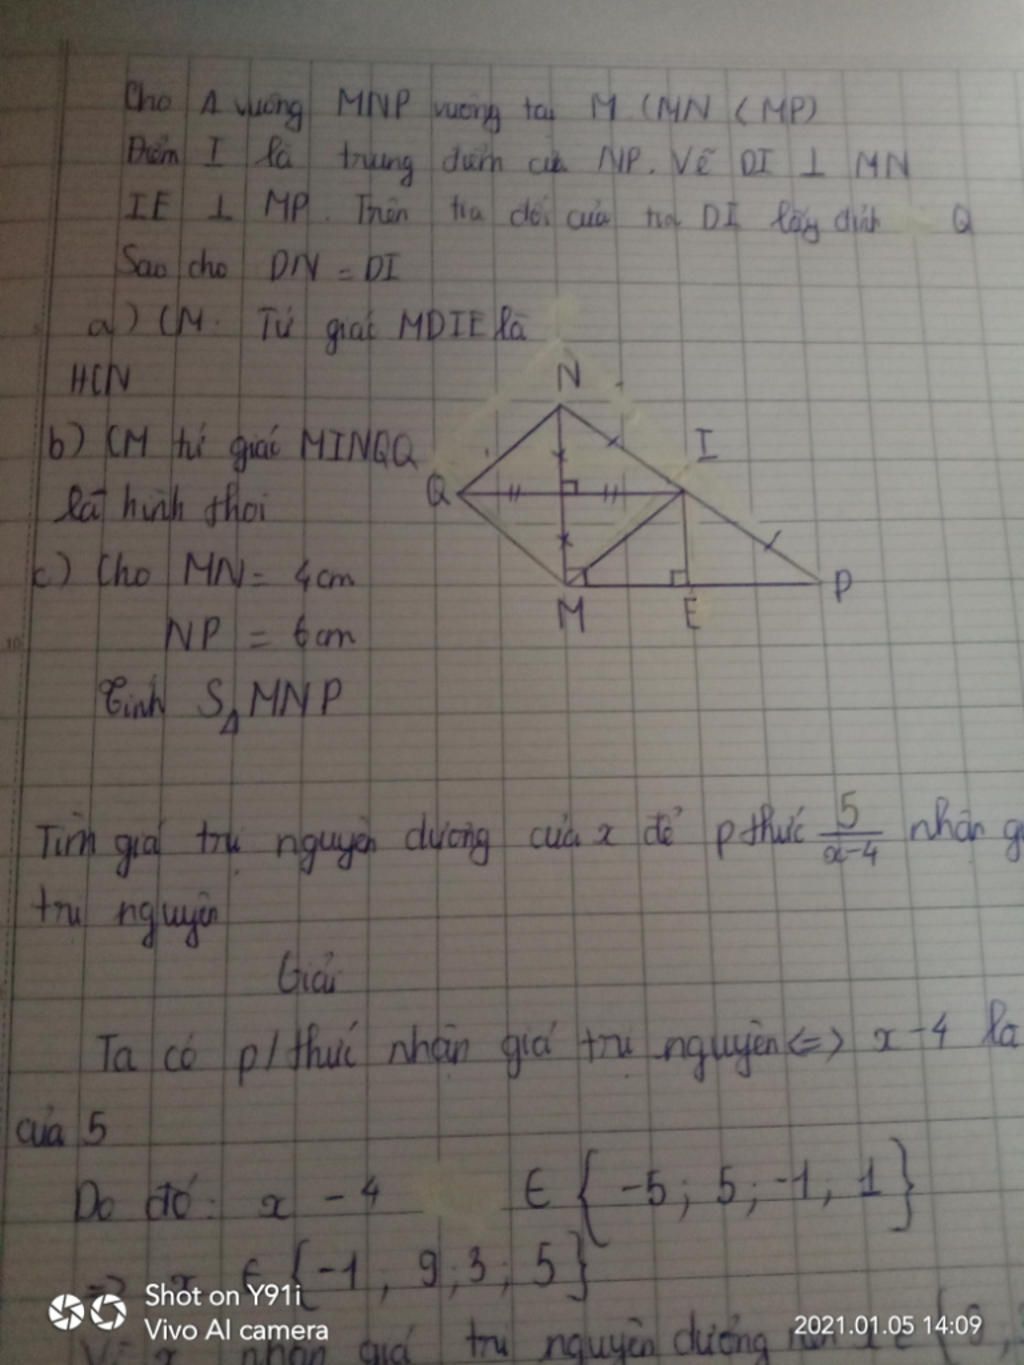 Cho Δ vuông MNP vuông tại M (MN < MP)
Điểm I là trung điểm của NP. Vẽ DI ⊥ MN
IE ⊥ MP. Trên tia đối của tia DI lấy Q
Sao cho DN = DI
a) CM. Tứ giác MDIE là
HCN
N
b) CM tứ giác MINQ
I
Q
là hình thoi
c) Cho MN = 4cm
P
M
E
NP = 6cm
Tính SΔ MNP
Tìm giá trị nguyên dương của x để p thức 5/(x-4) nhận
trị nguyên
Giải
Ta có p/thức nhận giá trị nguyên <=> x-4 là
của 5
Do đó: x - 4 ∈ {-5; 5; -1; 1}
=> x ∈ {-1, 9, 3; 5}
Vì x nhận giá trị nguyên dương nên x ∈ {
Shot on Y91i
Vivo AI camera
2021.01.05 14:09